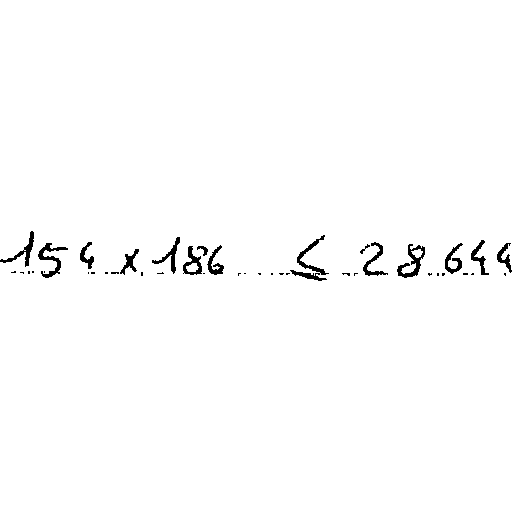 154 x 186 ≤ 28 644